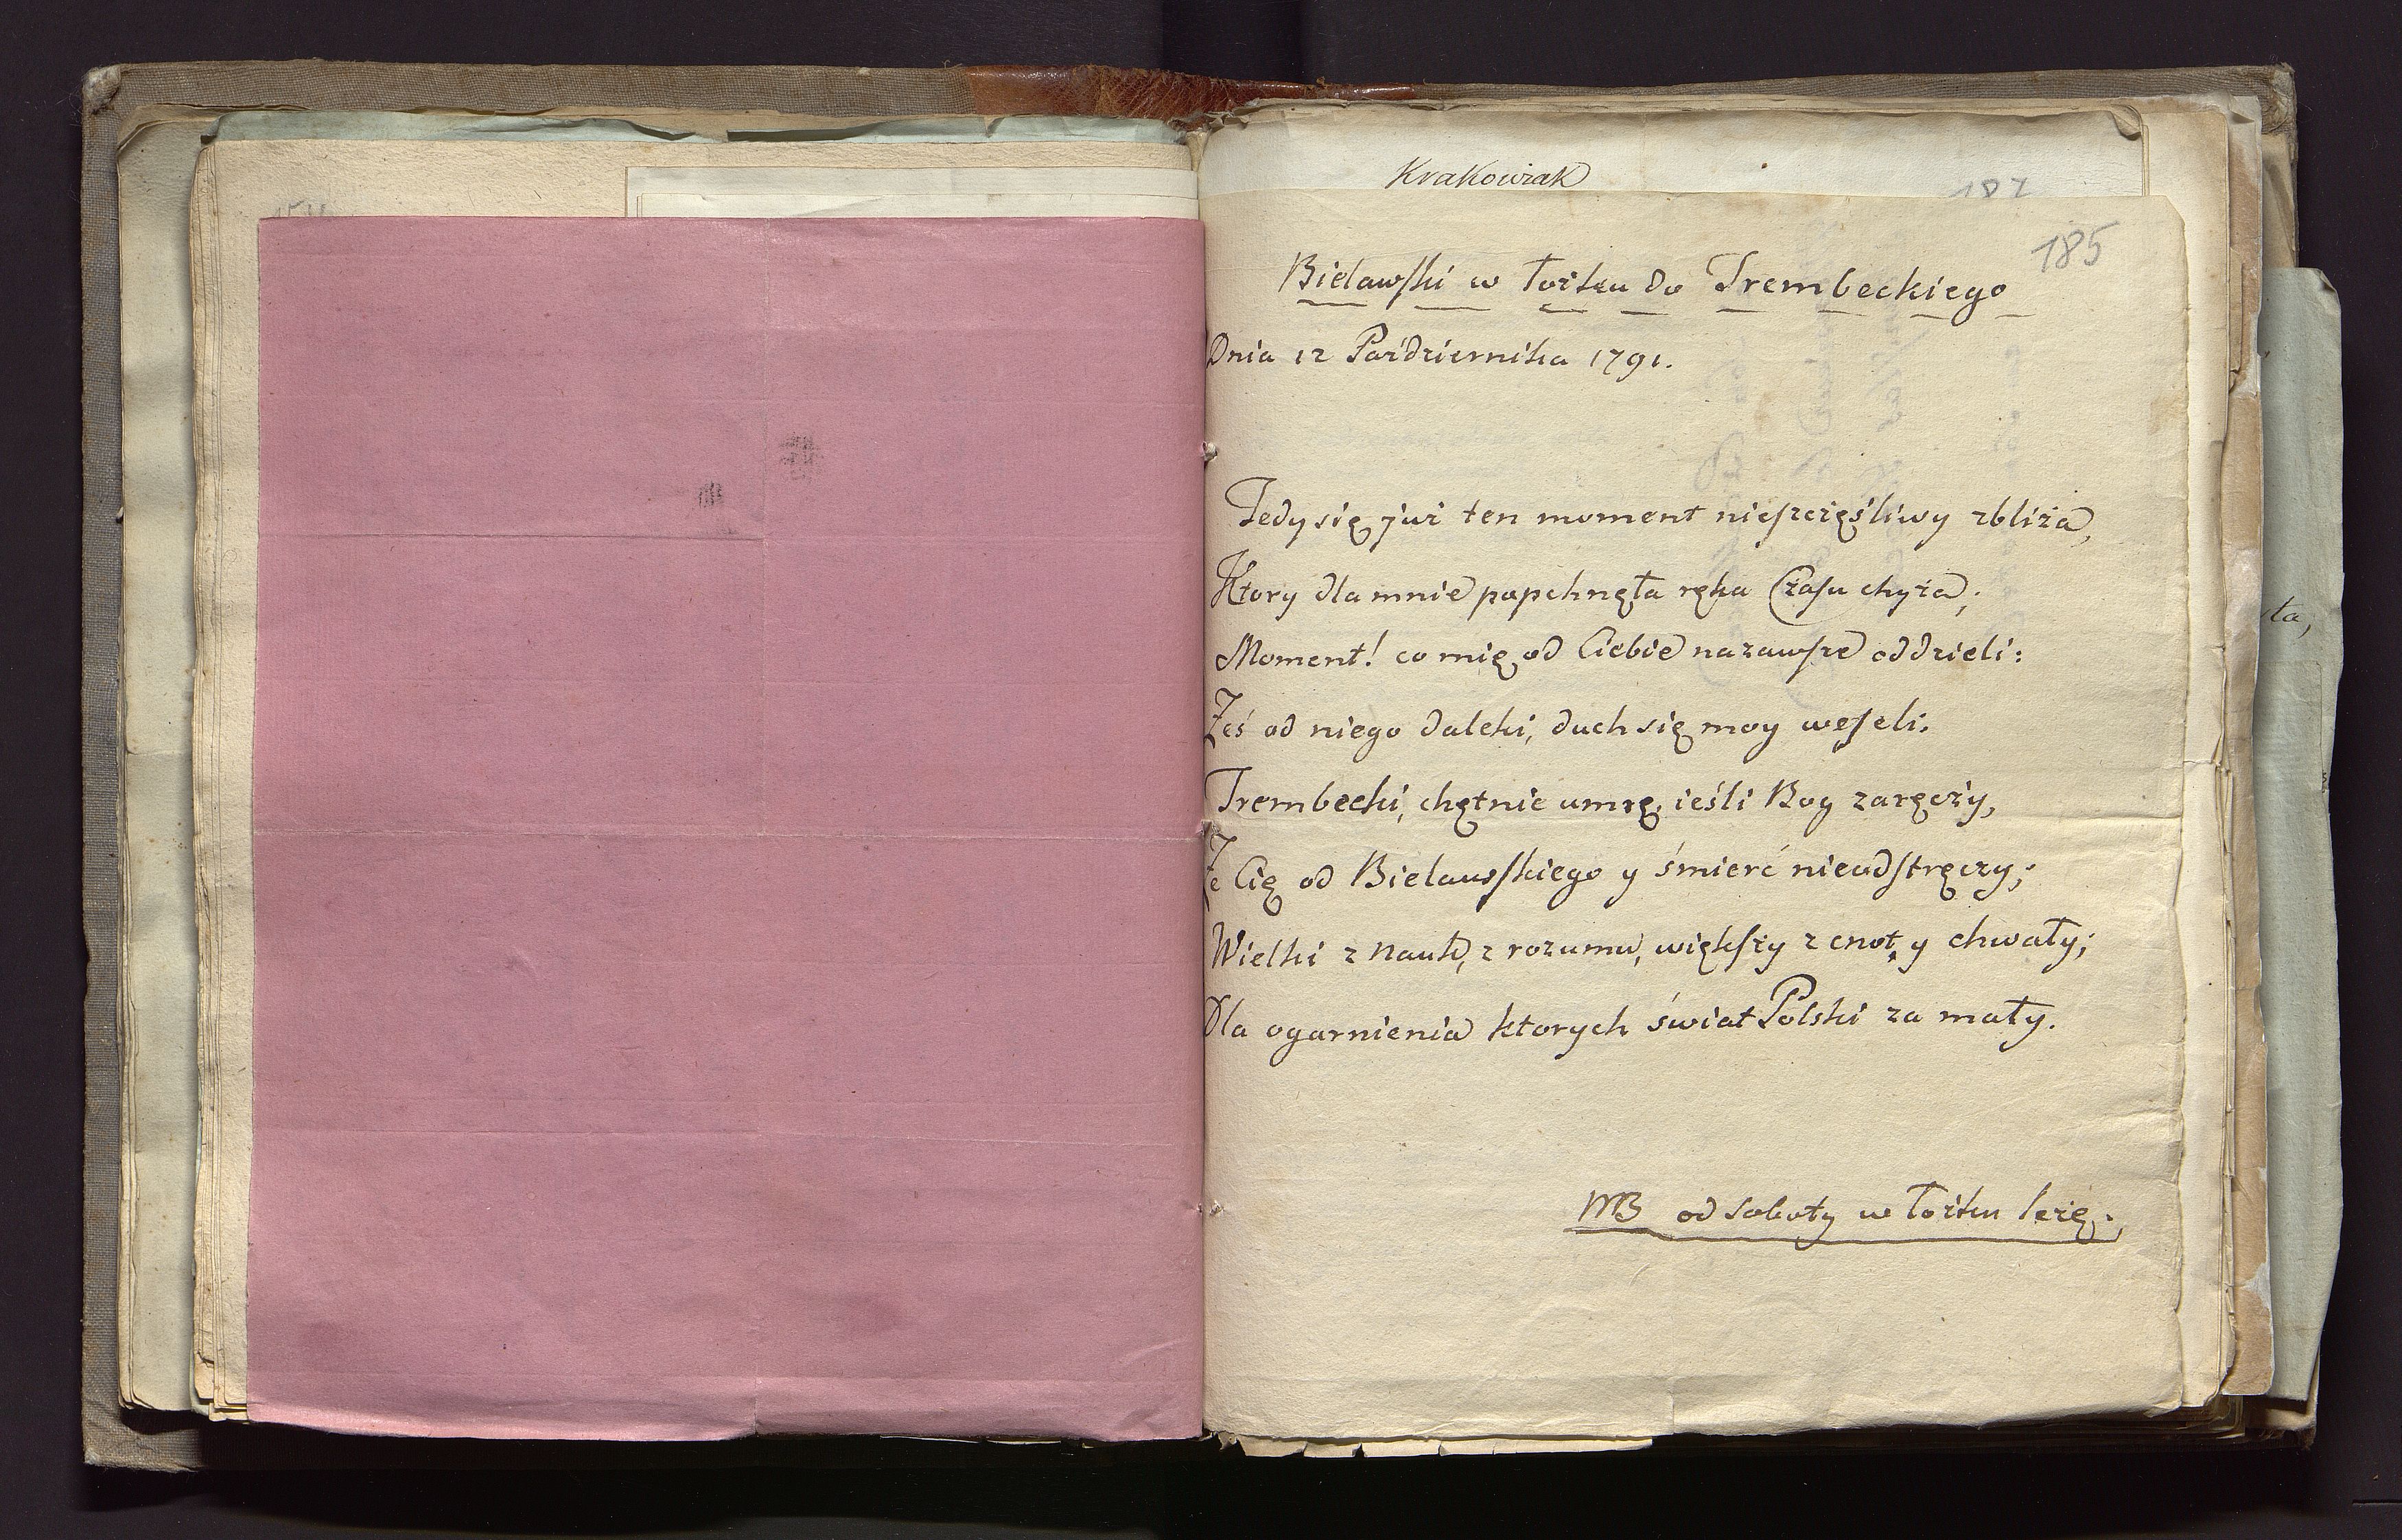 Krakowiak
187
185
Bielawski w łożku do Trembeckiego
Dnia 12 Października 1791.
Tedy się już ten moment nieszczęśliwy zbliża,
Ktory dla mnie popchnęła ręka Czasu chyża;
Moment! co mię od Ciebie nazawsze oddzieli:
Żeś od niego daleki, duch się moy weseli.
Trembecki, chętnie umrę, ieśli Bog zaręczy,
Że Cię od Bielawskiego y śmierć nieodstręczy;
Wielki z Nauk, z rozumu, większy z cnot, y chwały;
Dla ogarnienia ktorych świat Polski za mały.
MB od soboty w łożku leżę.
ta,